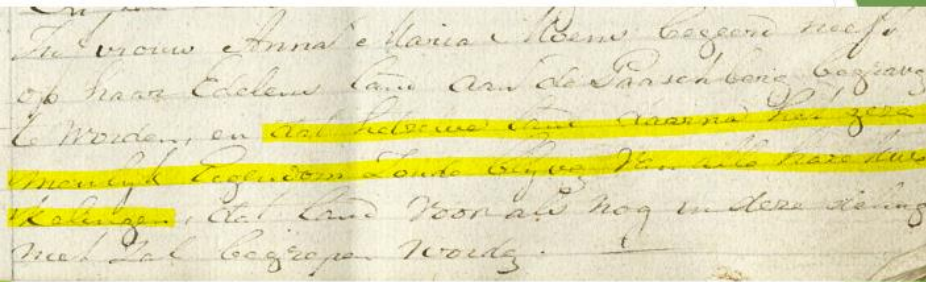 vrouw Anna Maria Moens begeerd heeft
op haar Edelens land aan de Paaschberg begrave
te worden, en dat helve land daarna het geza
menlijk Eigendom Zoude blyve van alle hare
dat land voor als nog in deze deling
niet Zal begrepen worde.